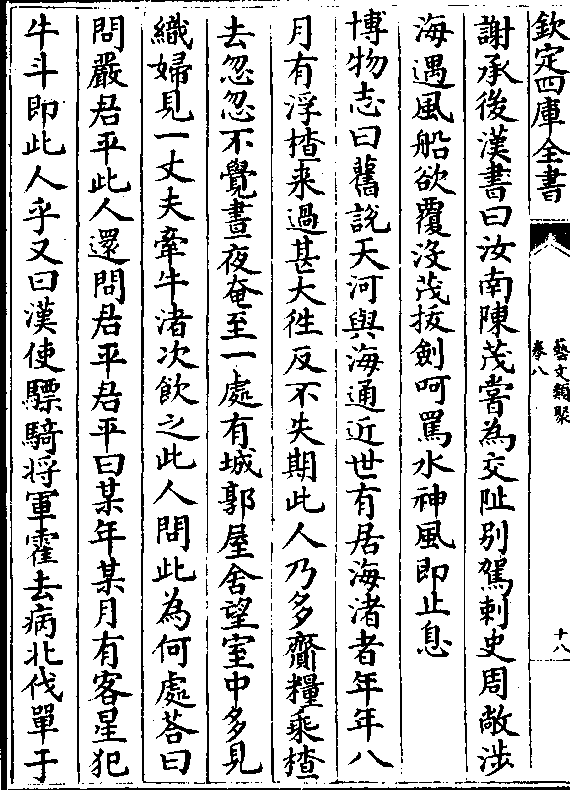 欽定四庫全書
藝文類聚
卷八
十八
謝承後漢書曰汝南陳茂嘗為交阯別駕刺史周敞涉
海遇風船欲覆沒茂拔劍呵罵水神風即止息
博物志曰舊說天河與海通近世有居海渚者年年八
月有浮楂来過甚大徃反不失期此人乃多齎糧乘楂
去忽忽不覺晝夜奄至一處有城郭屋舍望室中多見
織婦見一丈夫牽牛渚次飲之此人問此為何處荅曰
問嚴君平此人還問君平君平曰某年某月有客星犯
牛斗即此人乎又曰漢使驃騎将軍霍去病北伐單于